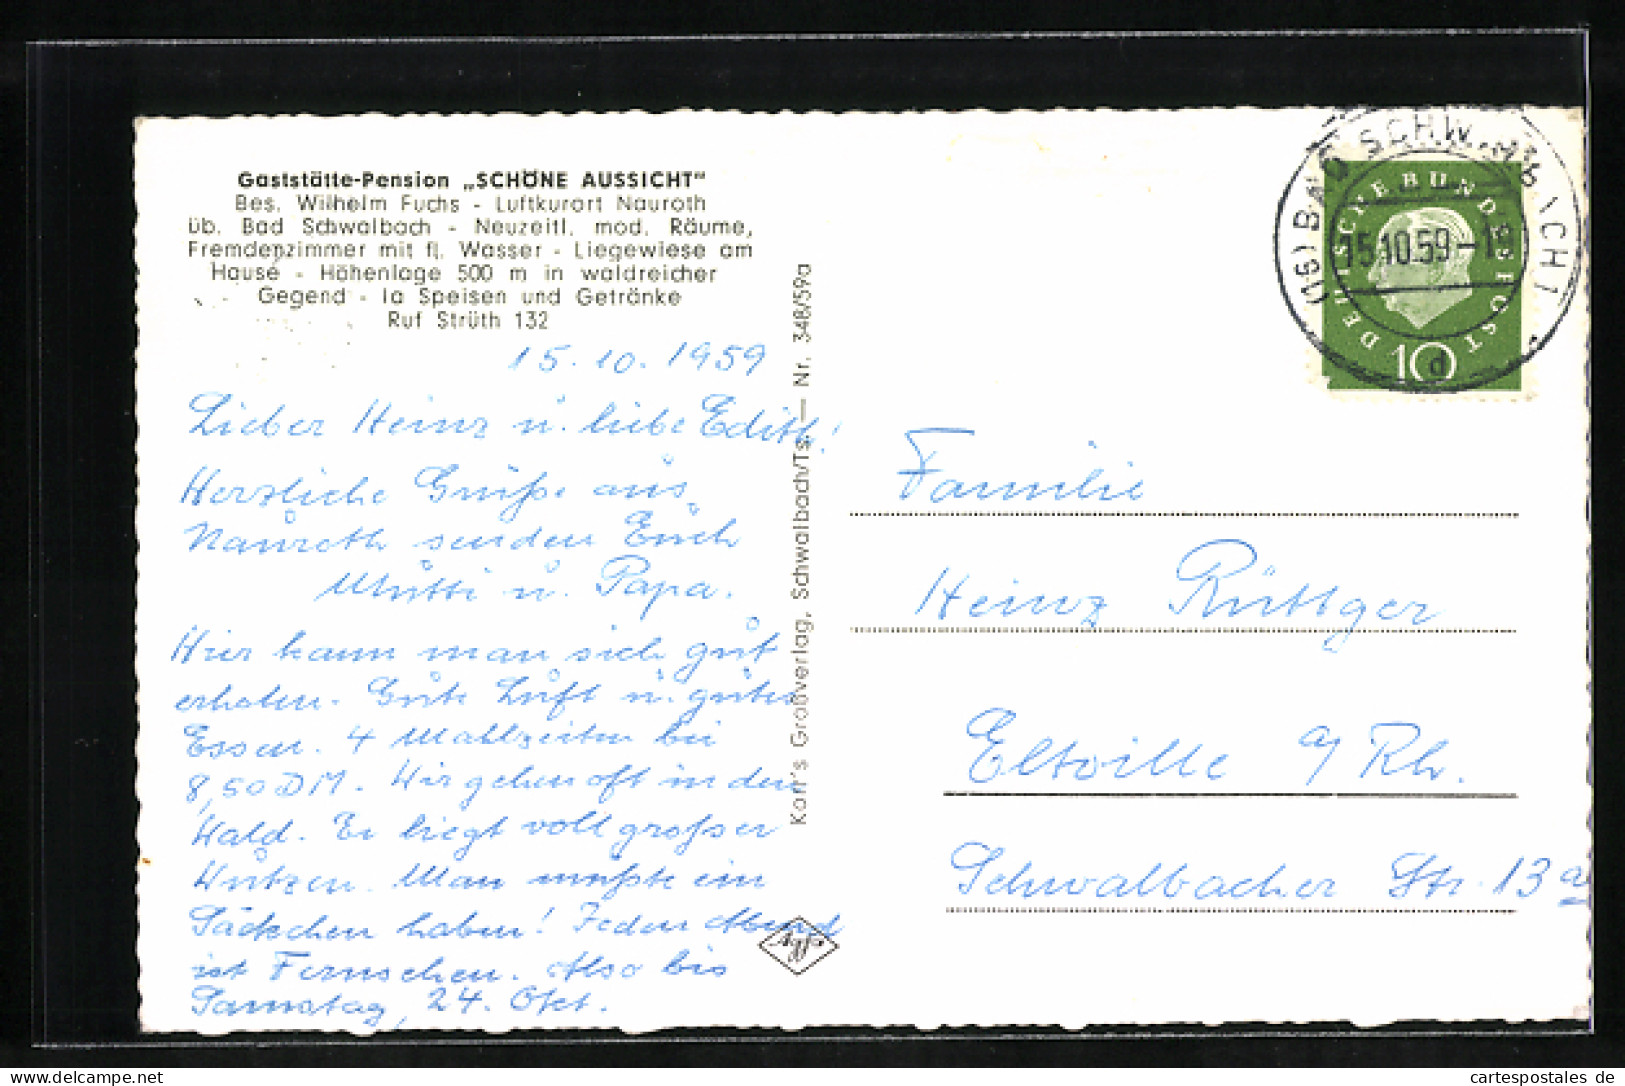 Gaststätte-Pension „SCHÖNE AUSSICHT"
Bes. Wilhelm Fuchs - Luftkurort Nauroth
üb. Bad Schwalbach - Neuzeitl. mod. Räume,
Fremdenzimmer mit fl. Wasser - Liegewiese am
Hause - Höhenlage 500 m in waldreicher
Gegend - Ia Speisen und Getränke
Ruf Strüth 132
15.10.1959
Lieber Heinz u. liebe Edith!
Herzliche Grüße aus
Nauroth senden Euch
Mutti u. Papa.
Hier kann man sich gut
erholen. Gute Luft u. gutes
Essen. 4 Mahlzeiten bei
8,50 DM. Wir gehen oft in den
Wald. Er liegt voll großer
Hutzen. Man müßte ein
Säckchen haben! Jeden Abend
ist Fernsehen. Also bis
Samstag, 24. Okt.
Karl's Großverlag, Schwalbach/Ts. — Nr. 348/59a
Agfa
(16) BAD SCHWALBACH 1
15.10.59-18
d
DEUTSCHE BUNDESPOST
10
Familie
Heinz Rüttger
Eltville a/Rh.
Schwalbacher Str. 13a
delcampe.net
cartespostales de